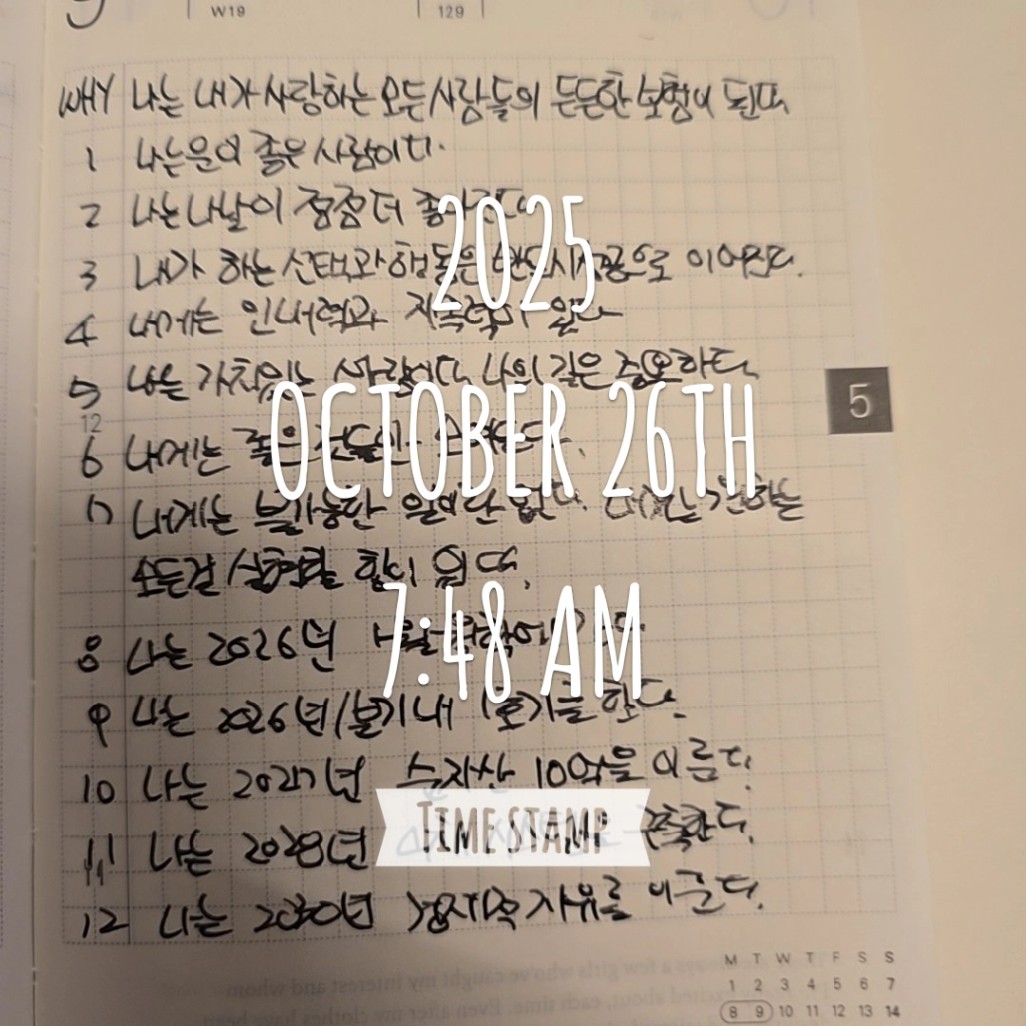 W19
129
WHY 나는 내가 사랑하는 모든 사람들의 든든한 보험이 된다
1 나는 운이 좋은 사람이다.
2 나는 나날이 점점 더
2025
3 내가 하는 선택과 행동은 반드시 성공으로 이어진다.
4 내게는 인내력과 지속력이 있다
5 나는 가치있는 사람이다 나의 길은 중요하다.
5
12
OCTOBER 26TH
6 나에게는 좋은
7 내게는 불가능한 일이란 없다.
모든걸 실현할 힘이 있다.
7:48 AM
8 나는 2026년
9 나는 2026년 1분기 내 1호기를 한다.
10 나는 2027년 순자산 10억을 이룬다.
TIMESTAMP
11 나는 2028년 구축한다.
12 나는 2030년 경제적 자유를 이룬다.
M T W T F S S
1 2 3 4 5 6 7
8 9 10 11 12 13 14